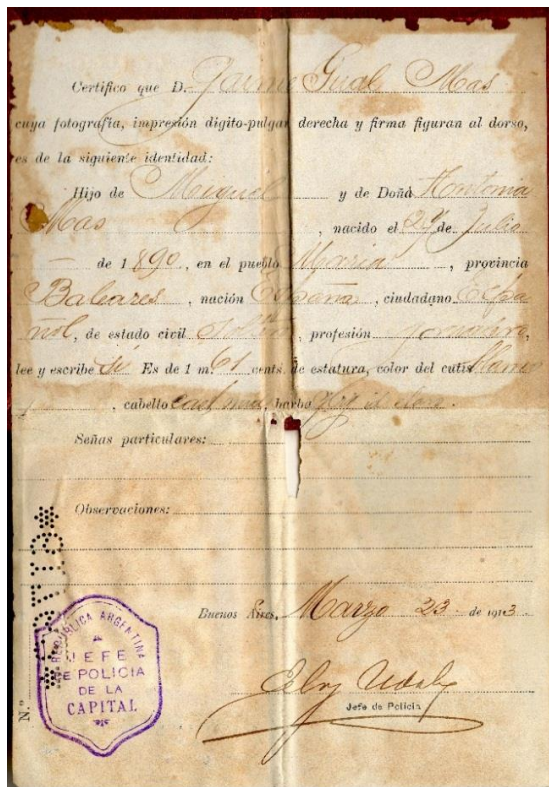 Certifico que D. Jaime Gual Mas
cuya fotografía, impresión dígito-pulgar derecha y firma figuran al dorso,
es de la siguiente identidad:
Hijo de Miguel y de Doña Antonia
Mas, nacido el de Julio
de 1890, en el pueblo Maria, provincia
Baleares, nación España, ciudadano Espa
ñol, de estado civil soltero, profesión jornalero,
lee y escribe si Es de 1 m. 61 cents. de estatura, color del cutis blanco
, cabello cast barba
Señas particulares:
Observaciones:
Buenos Aires, Marzo 23 de 1913.
Jefe de Policía
REPUBLICA ARGENTINA
JEFE
DE POLICIA
DE LA
CAPITAL
N.º